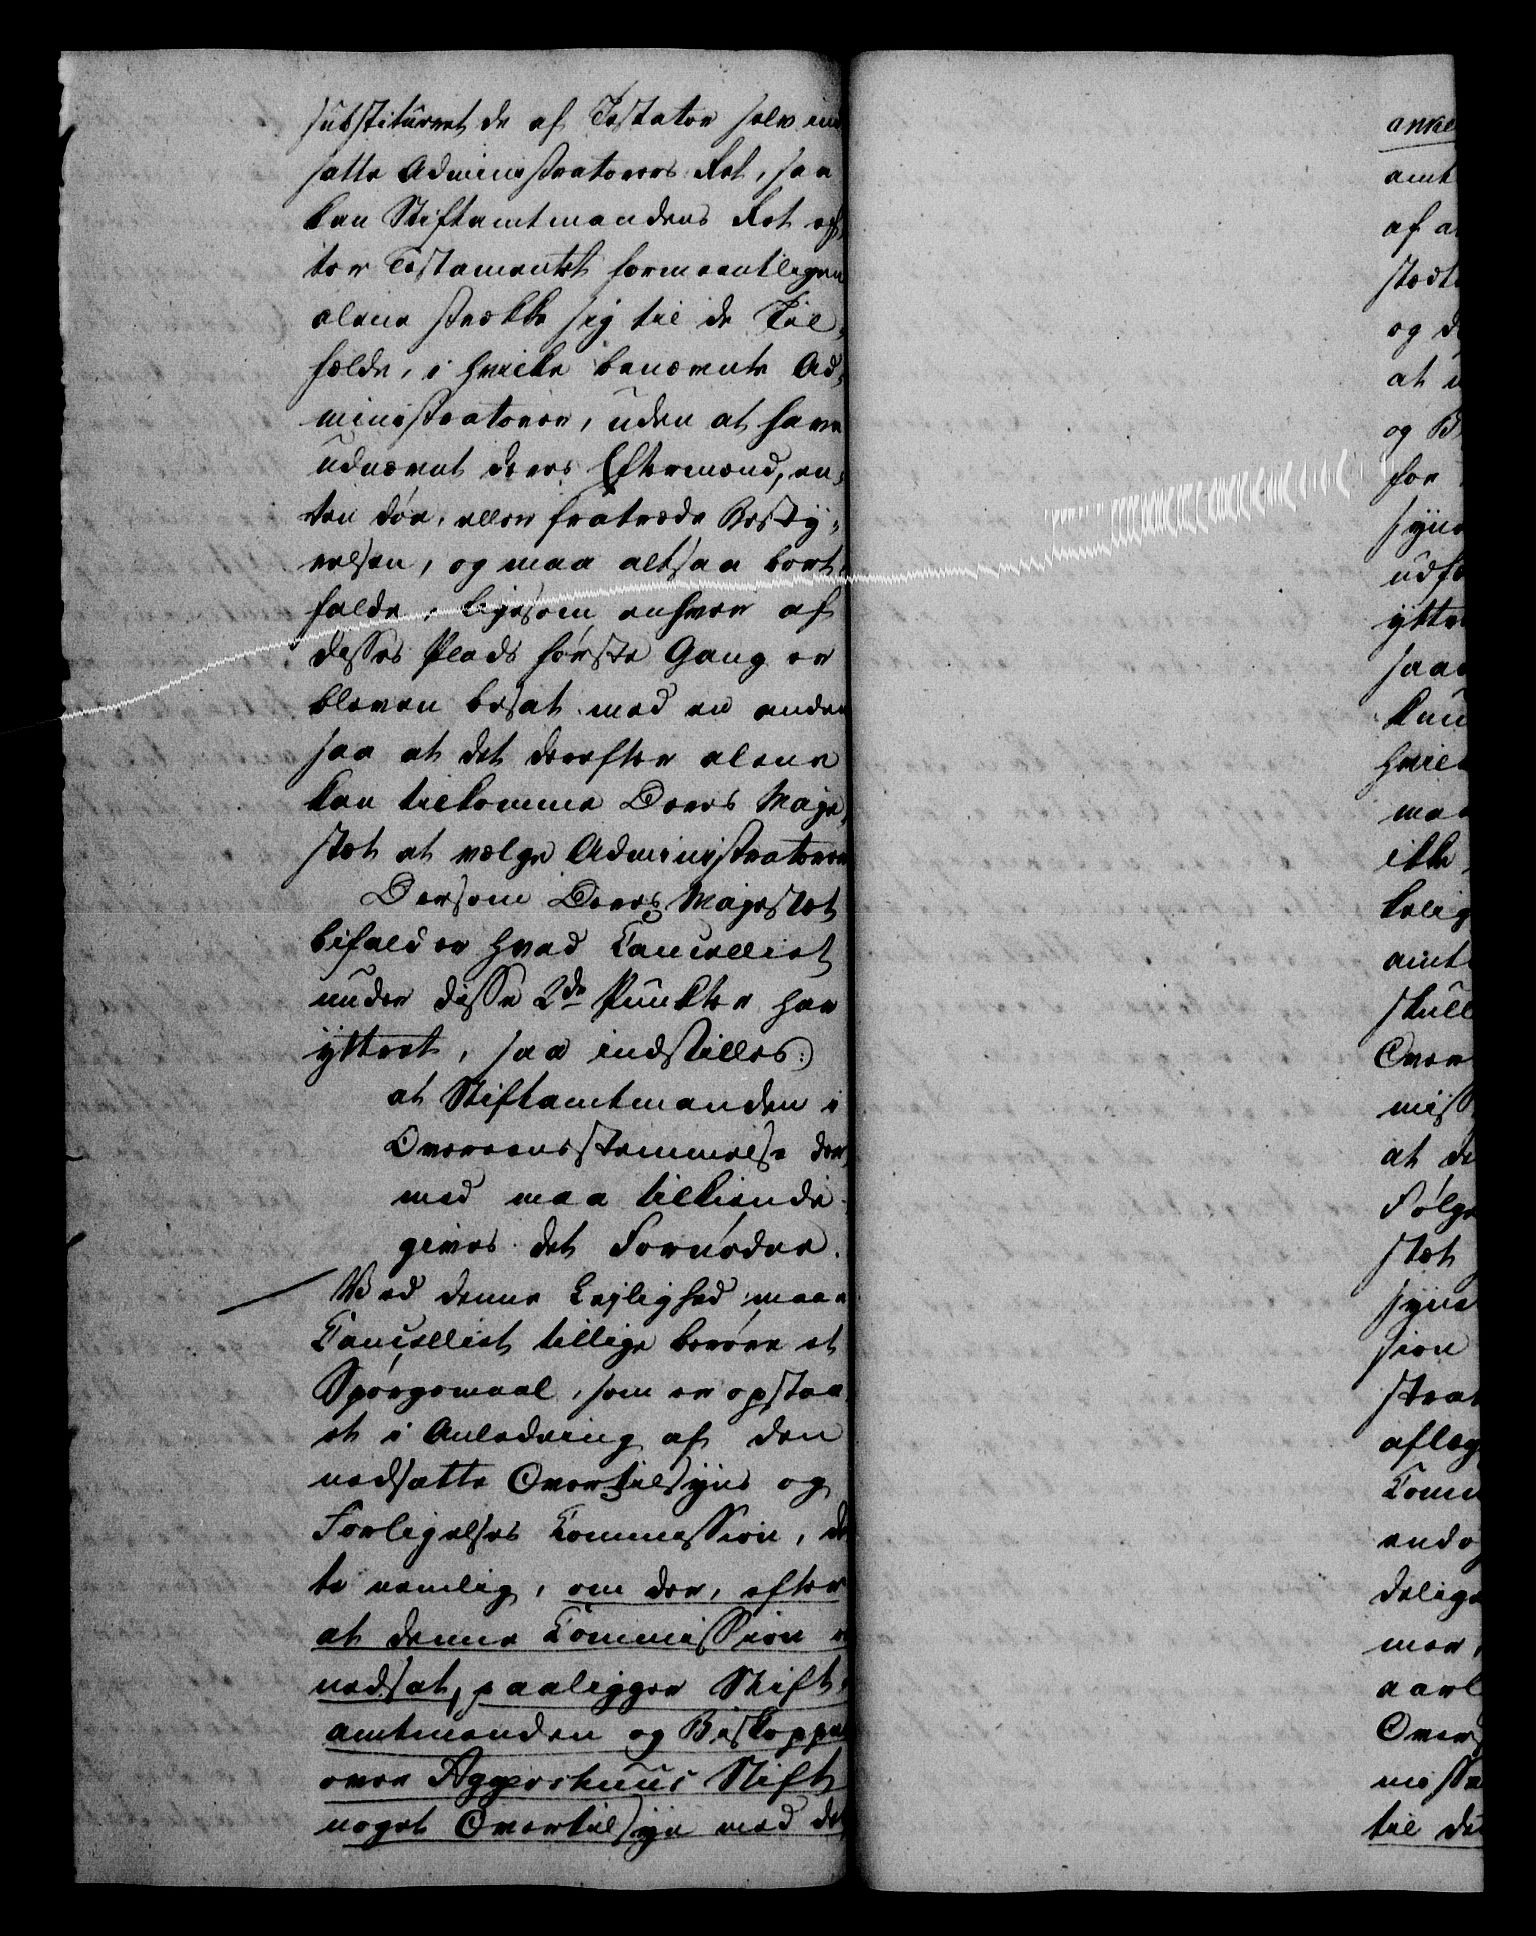 substitueret de af Testator selv ind
satte Administratorers Ret, saa
kan Stiftamtmandens Ret ef,
ter Testamentet formeentligen
alene strække sig til de Til,
fælde, i hvilke benævnte Ad,
ministratorer, uden at have
udnævnt deres Eftermænd, en,
ten døe, eller fratræde Besty,
relsen, og maa altsaa bort,
falde, ligesom enhver af
disses Plads første Gang er
bleven besat med en anden
saa at det derefter alene
kan tilkomme Deres Maje,
stæt at vælge Administratorer
Dersom Deres Majestæt
bifalder hvad Cancelliet
under disse 2de Punkter har
yttret, saa indstilles:
at Stiftamtmanden i
Overeensstemmelse der,
med maa tilkiende
gives det Fornødne.
Ved denne Leylighed maae
Cancelliet tillige berøre et
Spørgsmaal, som er opstaa
et i Anledning af den
nedsatte Overtilsyns og
Forligelses Commission, det
te nemlig, om der, efter
at denne Commission er
nedsat, paaligger Stift,
amtmanden og Biskoppen
over Aggershuus Stift
noget Overtilsyn med de
anke
amt
af a
stædt
og d
at u
og B
for
syns
udfø
yttre
saad
kun
hvile
maa
ikke
kelig
amt
skull
Over
miss
at de
Følge
stæt
syns
sion
strat
aflæg
Comm
endog
delige
mer,
aarl
Over
misse
til de